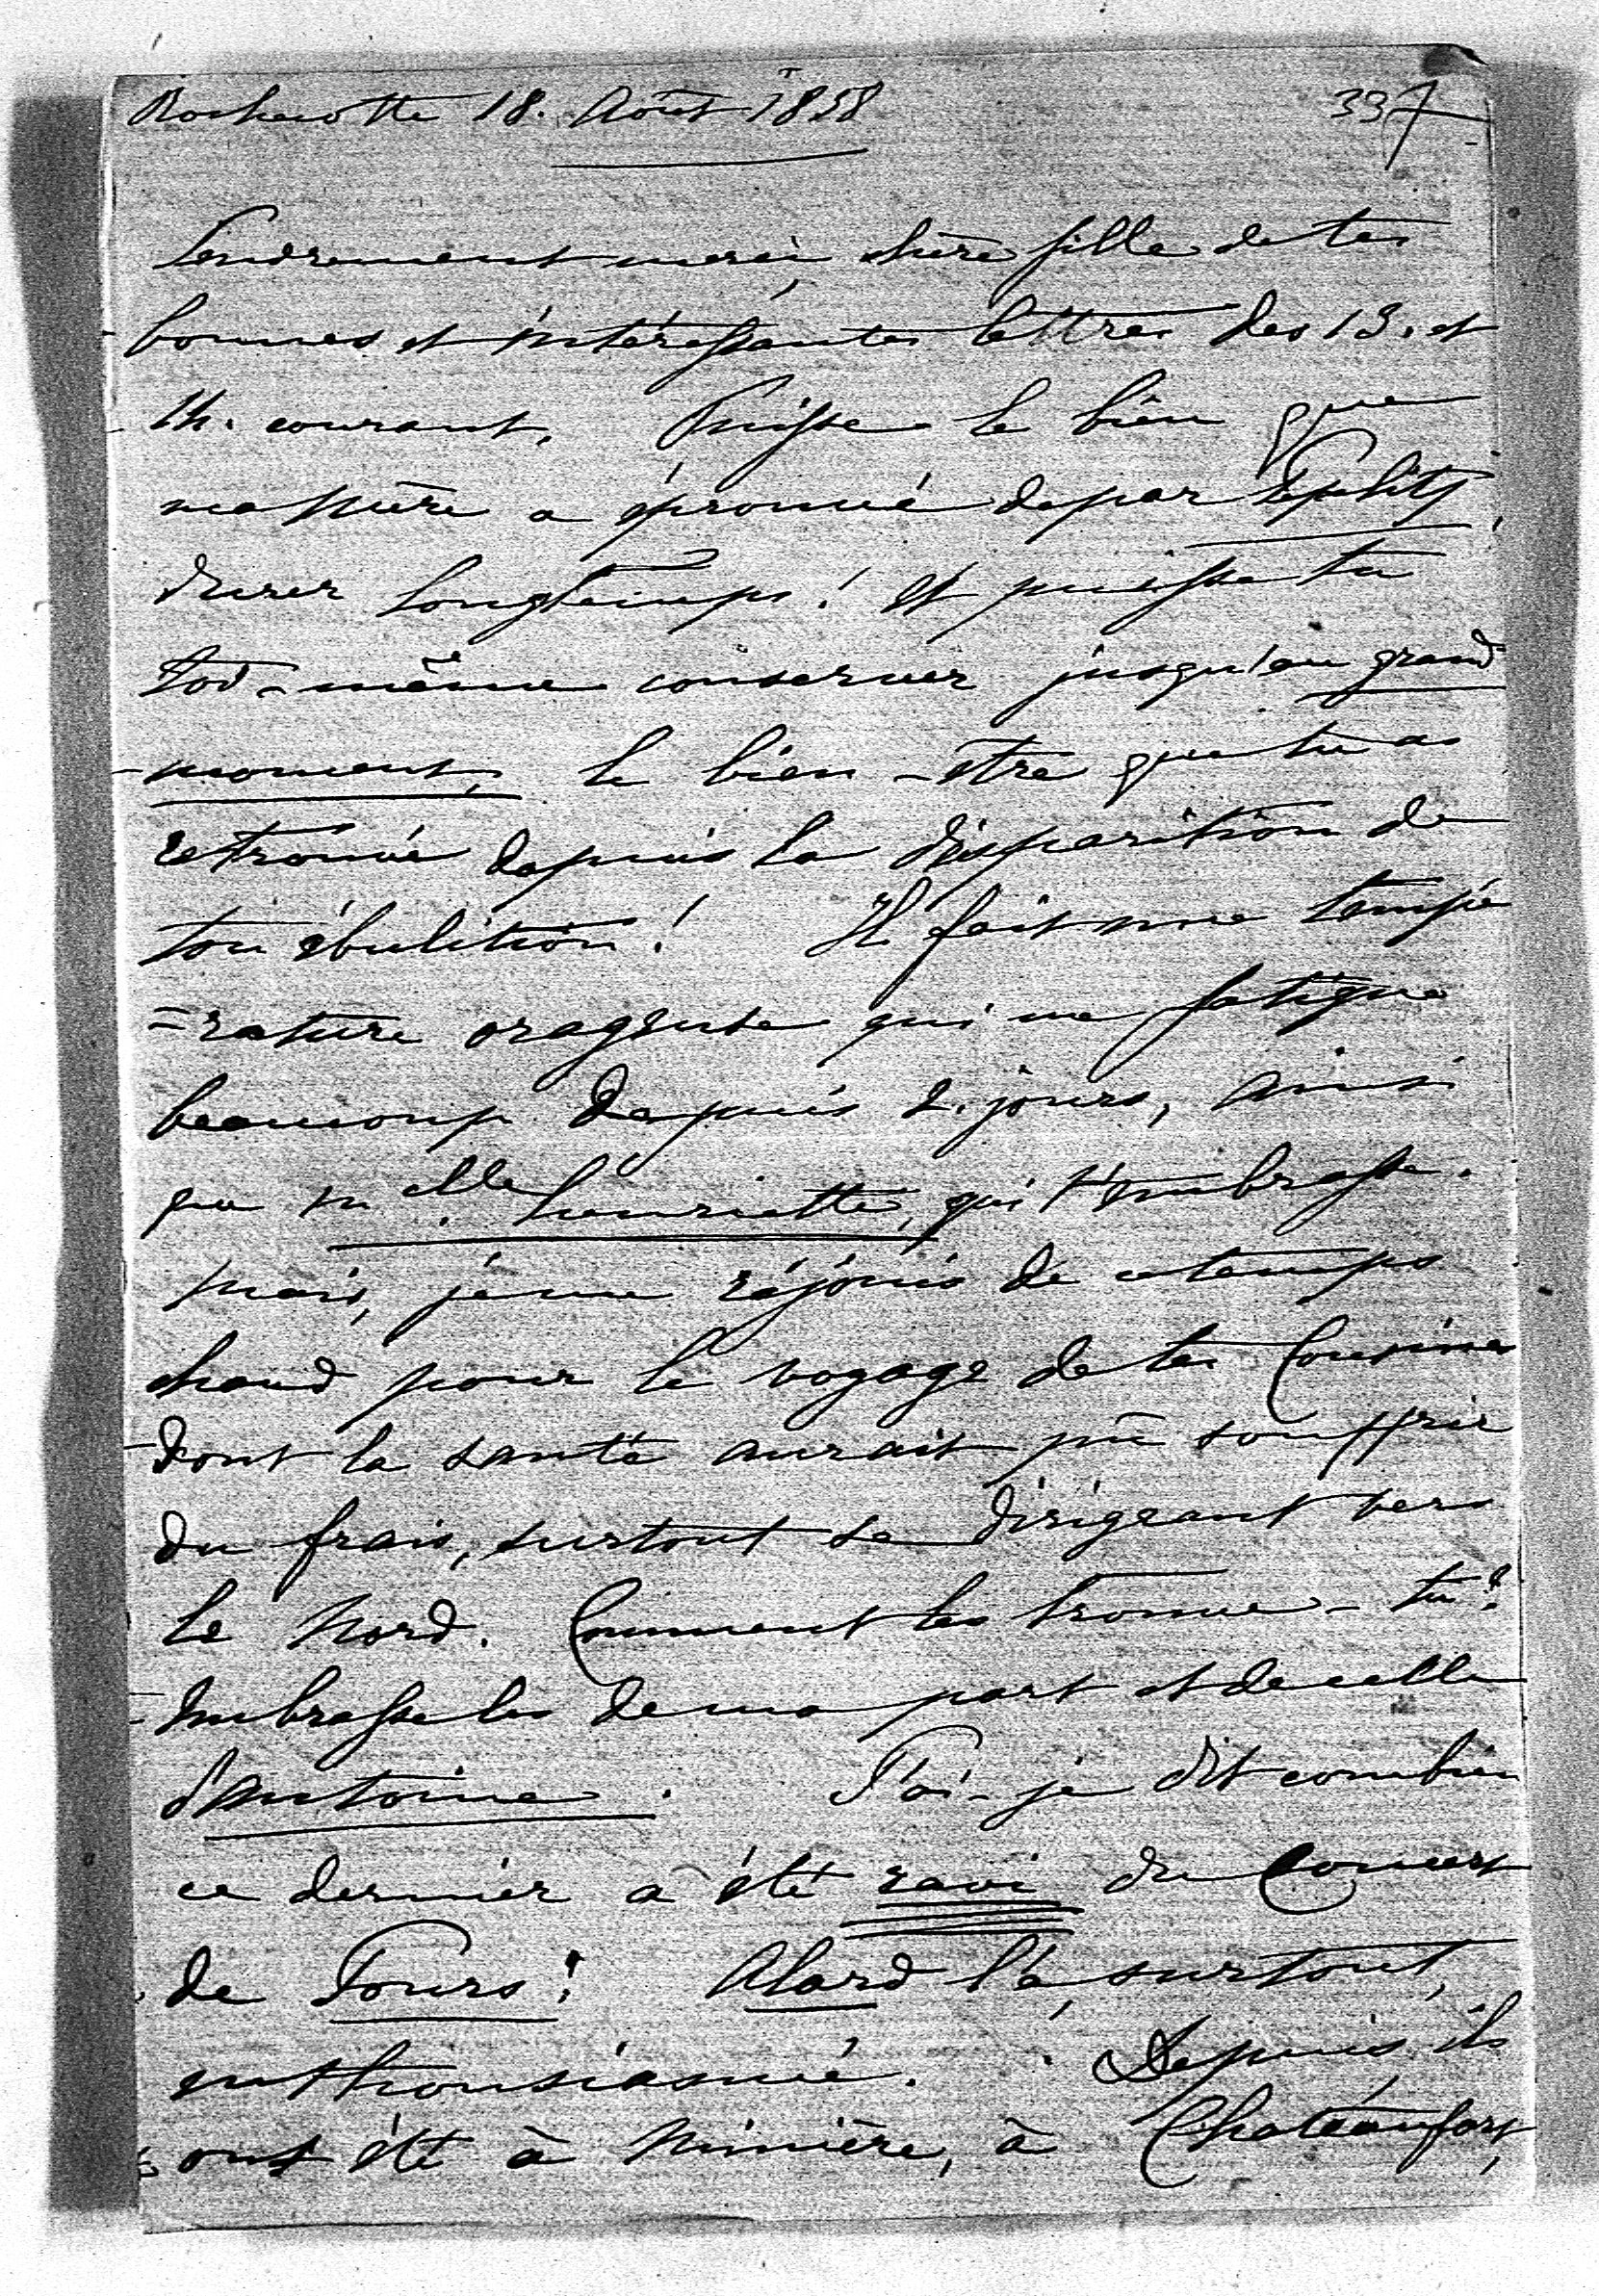 Rochecotte 18. Août 1858 337
Tendrement merci, chère fille de tes
bonnes et intéressantes lettres des 13. et
14. courant. Puisse le bien que
ma Mère a éprouvé depar
durer longtemps! et puisse tu
toi-même conserver jusqu'au grand
moment, le bien-être que tu as
retrouvé depuis la disparition de
ton ébulition! Il fait une tempé
=rature orageuse qui me fatigue
beaucoup depuis 2. jours, ainsi
que Melle. henriette, qui t'embrasse.
Mais, je me réjouis de ce temps
chaud pour le voyage de tes Cousines
dont la santé aurait pû souffrir
du frais, surtout se dirigeant vers
le Nord. Comment les trouve-tu?
Embrasse les de ma part et de celle
d'Antoine. T'ai-je dit combien
ce dernier a été ravi du Concert
de Tours! Alard l'a, surtout,
enthousiasmé. Depuis, ils
ont été à Minière, à Chateaufort,